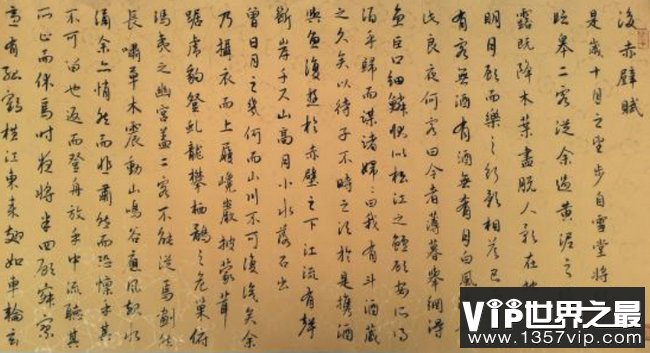 後赤壁賦
是歲十月之望步自雪堂將
臨皋二客從余過黃泥之
露既降木葉盡脫人影在
明月顧而樂之行歌相答已
有客無酒有酒無肴月白風
此良夜何客曰今者薄暮舉網得
魚巨口細鱗狀似松江之鱸顧安所得
酒乎歸而謀諸婦々曰我有斗酒藏
之久矣以待子不時之須於是攜酒
與魚復遊於赤壁之下江流有聲
斷岸千尺山高月小水落石出
曾日月之幾何而山川不可復識矣余
乃攝衣而上履巉巖披蒙茸
踞虎豹登虬龍攀栖鶻之危巢俯
馮夷之幽宮蓋二客不能從焉劃然
長嘯草木震動山鳴谷應風起水
涌余亦悄然而悲肅然而恐凜乎其
不可留也返而登舟放乎中流聽其
所止而休焉時夜將半四顧寂寥
適有孤鶴橫江東來翅如車輪玄
VIP世界之最
www.1357vip.com